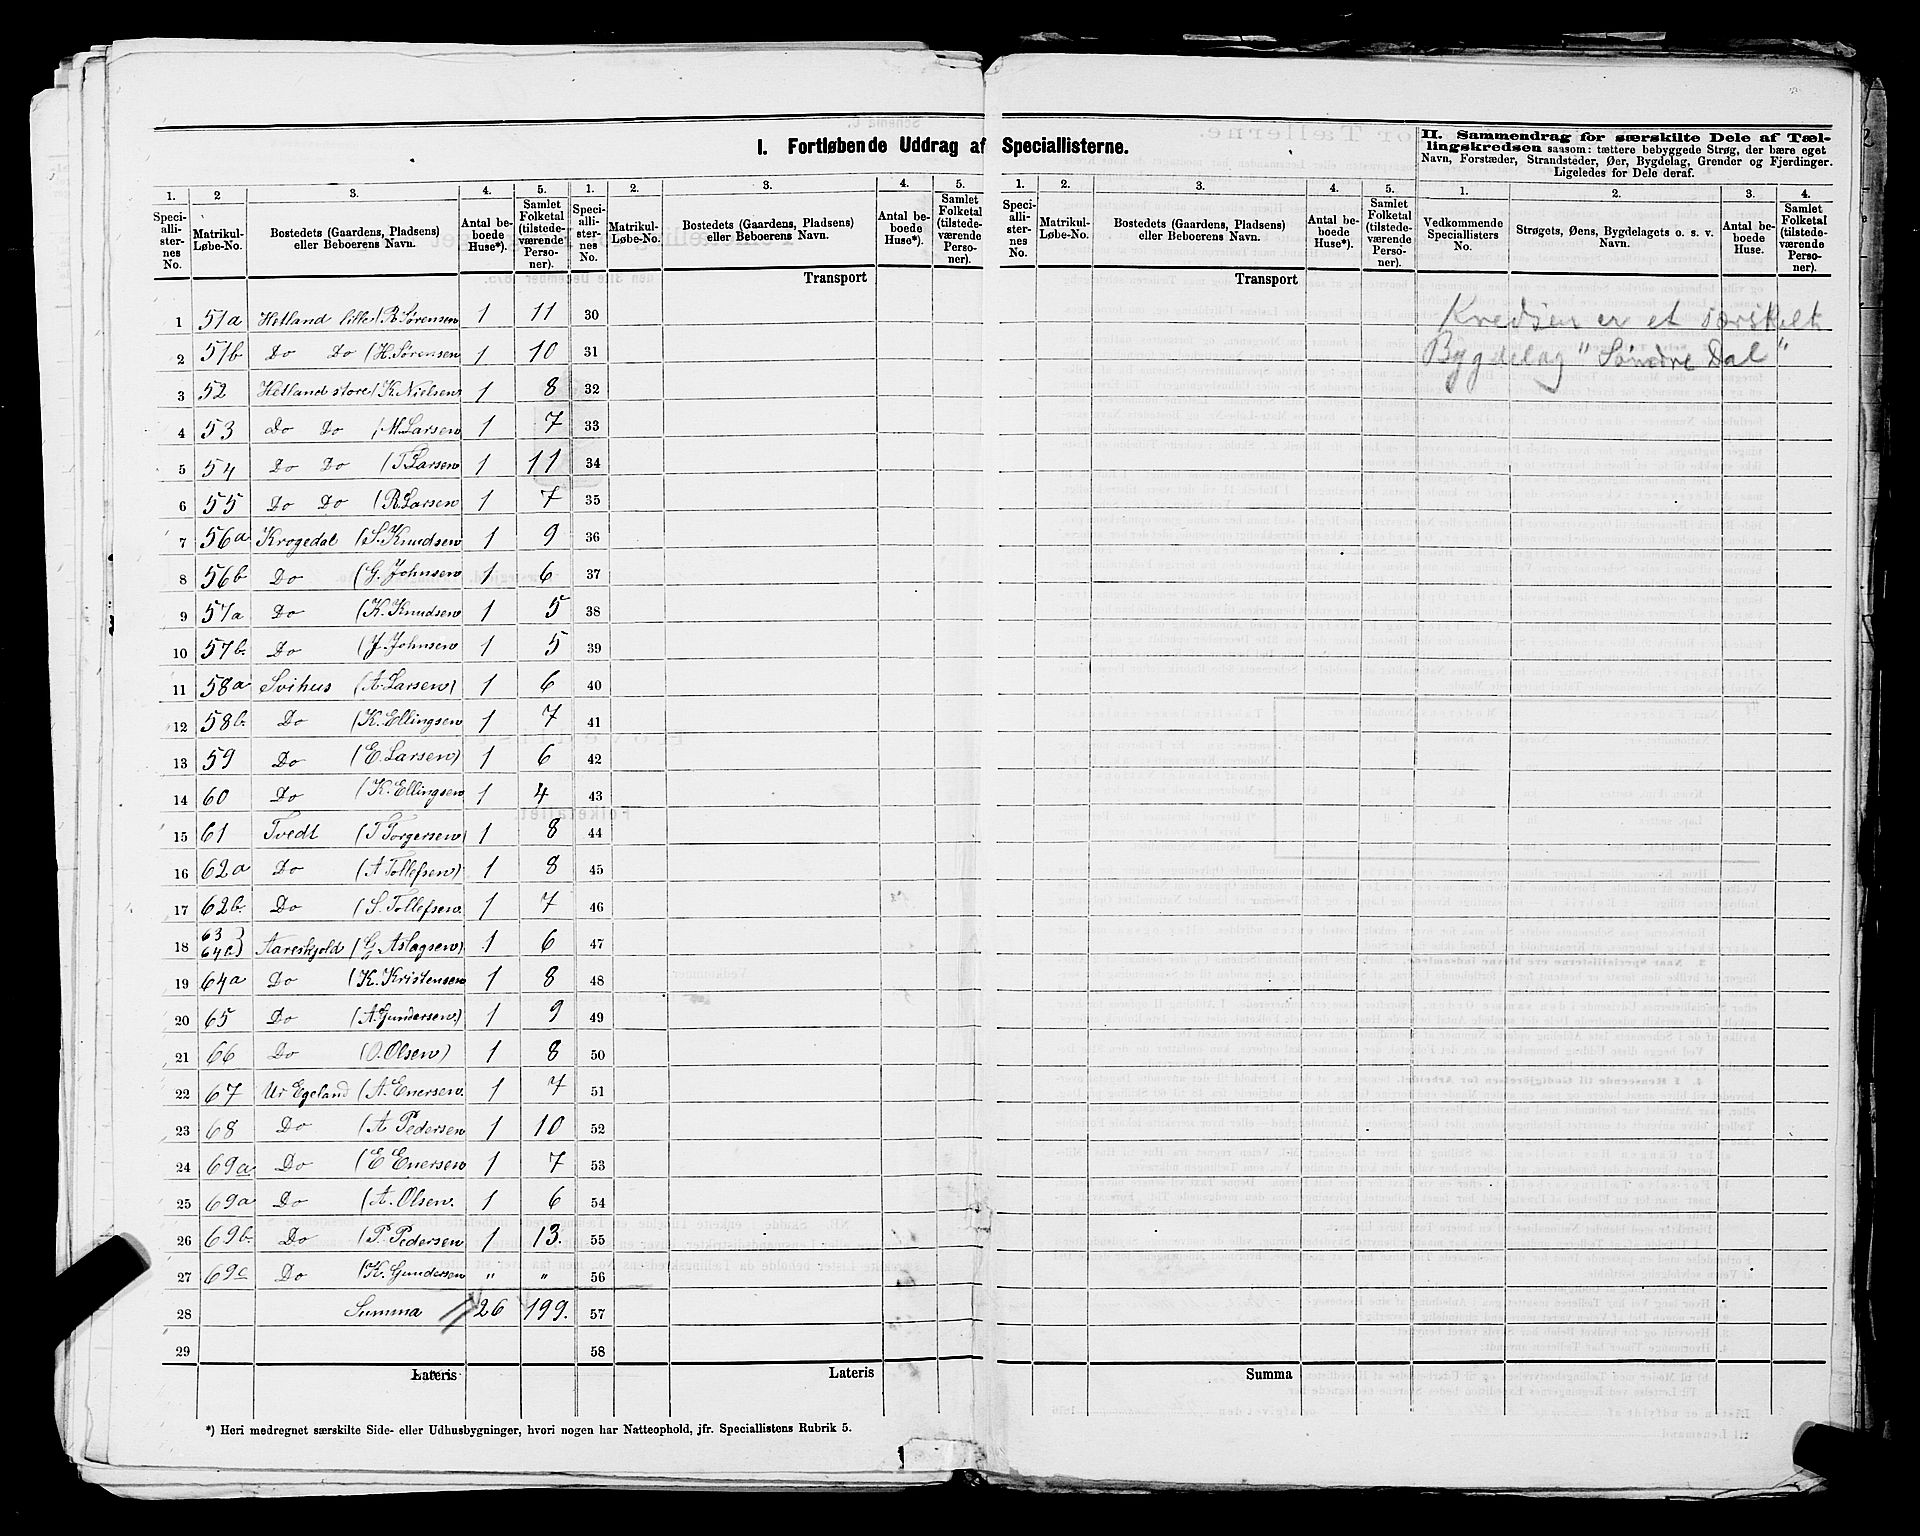 I. Fortløbende Uddrag af Speciallisterne.
II. Sammendrag for særskilte Dele af Tællingskredsen saasom: tættere bebyggede Strøg, der bære eget Navn, Forstæder, Strandsteder, Øer, Bygdelag, Grender og Fjerdinger. Ligeledes for Dele deraf.
1. 2 3. 4. 5. 1. 2. 3. 4. 5. 1. 2. 3. 4. 5. 1. 2. 3. 4.
Speciallisternes No. Matrikul-Løbe-No. Bostedets (Gaardens, Pladsens) eller Beboerens Navn. Antal beboede Huse*). Samlet Folketal (tilstedeværende Personer).
Speciallisternes No. Matrikul-Løbe-No. Bostedets (Gaardens, Pladsens) eller Beboerens Navn. Antal beboede Huse*). Samlet Folketal (tilstedeværende Personer).
Speciallisternes No. Matrikul-Løbe-No. Bostedets (Gaardens, Pladsens) eller Beboerens Navn. Antal beboede Huse*). Samlet Folketal (tilstedeværende Personer).
Vedkommende Speciallisters No. Strøgets, Øens, Bygdelagets o. s. v. Navn. Antal beboede Huse. Samlet Folketal (tilstedeværende Personer).
Transport Transport
1 51a Hetland lille (R Sørensen 1 11 30
2 51b Do Do (H. Sørensen 1 10 31
3 52 Hetland store (K. Nielsen 1 8 32
4 53 Do Do (M. Larsen 1 7 33
5 54 Do Do (T Larsen 1 11 34
6 55 Do Do (R Larsen 1 7 35
7 56a Krogedal (S. Knudsen 1 9 36
8 56b Do (G. Johnsen 1 6 37
9 57a Do (K. Knudsen 1 5 38
10 57b. Do (J. Johnsen 1 5 39
11 58a Svihus (A Larsen) 1 6 40
12 58b. Do (K. Ellingsen 1 7 41
13 59 Do (E. Larsen) 1 6 42
14 60 Do (K. Ellingsen 1 4 43
15 61 Tvedt (T Torgersen) 1 8 44
16 62a Do (A Tollefsen) 1 8 45
17 62b. Do (S. Tollefsen. 1 7 46
18 63 64b) Aareskjold (G Aslagsen) 1 6 47
19 64a Do (K. Kristensen 1 8 48
20 65 Do (A. Gundersen.) 1 9 49
21 66 Do (O. Olsen) 1 8 50
22 67 Ur Egeland (A. Enersen. 1 7 51
23 68 Do (A Pedersen 1 10 52
24 69a Do (E Enersen 1 7 53
25 69a Do (A. Olsen. 1 6 54
26 69b. Do (P. Pedersen 1 13. 55
27 69c Do (K. Gundersen " " 56
28 Summa 26 199. 57
29 58
Lateris Lateris Summa
Kredsen er et særskilt
Bygdelag "Søndre Dal"
*) Heri medregnet særskilte Side- eller Udhusbygninger, hvori nogen har Natteophold, jfr. Speciallistens Rubrik 5.